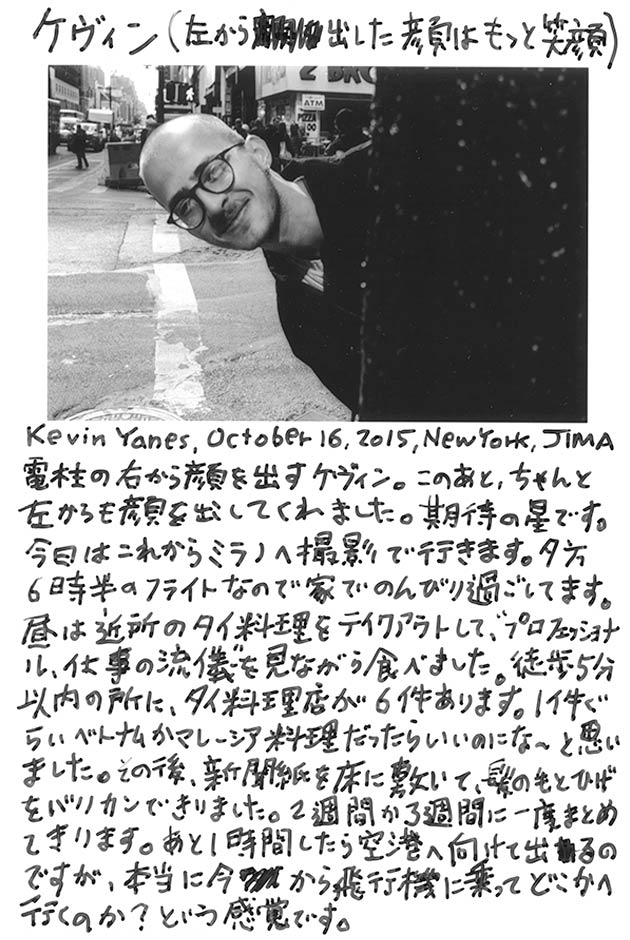 ケヴィン(左から出した顔はもっと笑顔)
ATM
PIZZA
Kevin Yanes, October 16, 2015, New York, JIMA
電柱の右から顔を出すケヴィン。このあと、ちゃんと
左からも顔を出してくれました。期待の星です。
今日はこれからミラノへ撮影で行きます。夕方
6時半のフライトなので家でのんびり過ごしてます。
昼は近所のタイ料理をテイクアウトして、"プロフェッショナ
ル、仕事の流儀"を見ながら食べました。徒歩5分
以内の所に、タイ料理店が6件あります。1件ぐ
らいベトナムかマレーシア料理だったらいいのにな〜と思い
ました。その後、新聞紙を床に敷いて、髪の毛とひげ
をバリカンできりました。2週間か3週間に一度まとめ
てきります。あと1時間したら空港へ向けて出るの
ですが、本当に今から飛行機に乗ってどこかへ
行くのか?という感覚です。